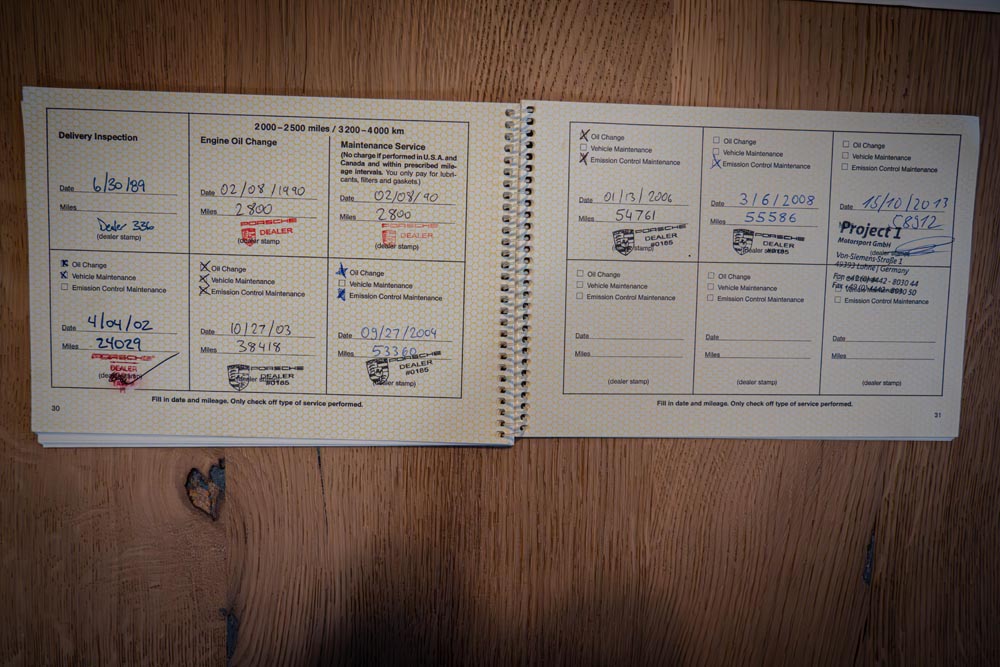 2000–2500 miles / 3200–4000 km
Delivery Inspection
Date 6/30/89
Miles
Dealer 336
(dealer stamp)
Engine Oil Change
Date 02/08/1990
Miles 2800
PORSCHE
DEALER
dealer stamp
Maintenance Service
(No charge if performed in U.S.A. and
Canada and within prescribed mile-
age intervals. You only pay for lubri-
cants, filters and gaskets.)
Date 02/08/90
Miles 2800
PORSCHE
DEALER
(dealer stamp)
Oil Change
Vehicle Maintenance
Emission Control Maintenance
Date 4/04/02
Miles 24029
PORSCHE
DEALER
Oil Change
Vehicle Maintenance
Emission Control Maintenance
Date 10/27/03
Miles 38418
PORSCHE
DEALER
#0185
Oil Change
Vehicle Maintenance
Emission Control Maintenance
Date 09/27/2004
Miles 53360
PORSCHE
DEALER
#0185
stamp)
Fill in date and mileage. Only check off type of service performed.
30
Oil Change
Vehicle Maintenance
Emission Control Maintenance
Date 01/13/2006
Miles 54761
PORSCHE
DEALER
#0185
Oil Change
Vehicle Maintenance
Emission Control Maintenance
Date 3/6/2008
Miles 55586
PORSCHE
DEALER
#0185
Oil Change
Vehicle Maintenance
Emission Control Maintenance
Date 15/10/2013
Miles 58912
Project 1
Motorsport GmbH
Von-Siemens-Straße 1
49393 Lohne / Germany
Oil Change
Vehicle Maintenance
Emission Control Maintenance
Date
Miles
(dealer stamp)
Oil Change
Vehicle Maintenance
Emission Control Maintenance
Date
Miles
(dealer stamp)
Emission Control Maintenance
Date
Miles
(dealer stamp)
Fill in date and mileage. Only check off type of service performed.
31